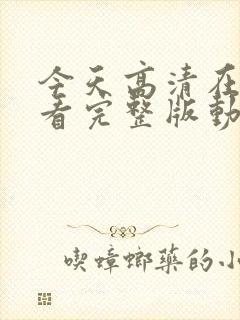 今天高清在
看完整版動
喫蟑螂藥的小